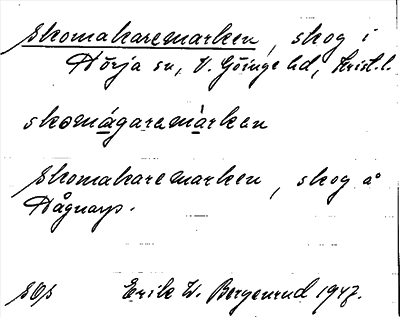 Skomakaremarken, skog i
Hörja sn, V. Göinge hd, Krist. l.
skomágaremàrken
Skomakaremarken, skog å
Hågnarp.
SOs Erik W. Bergenrud 1947.